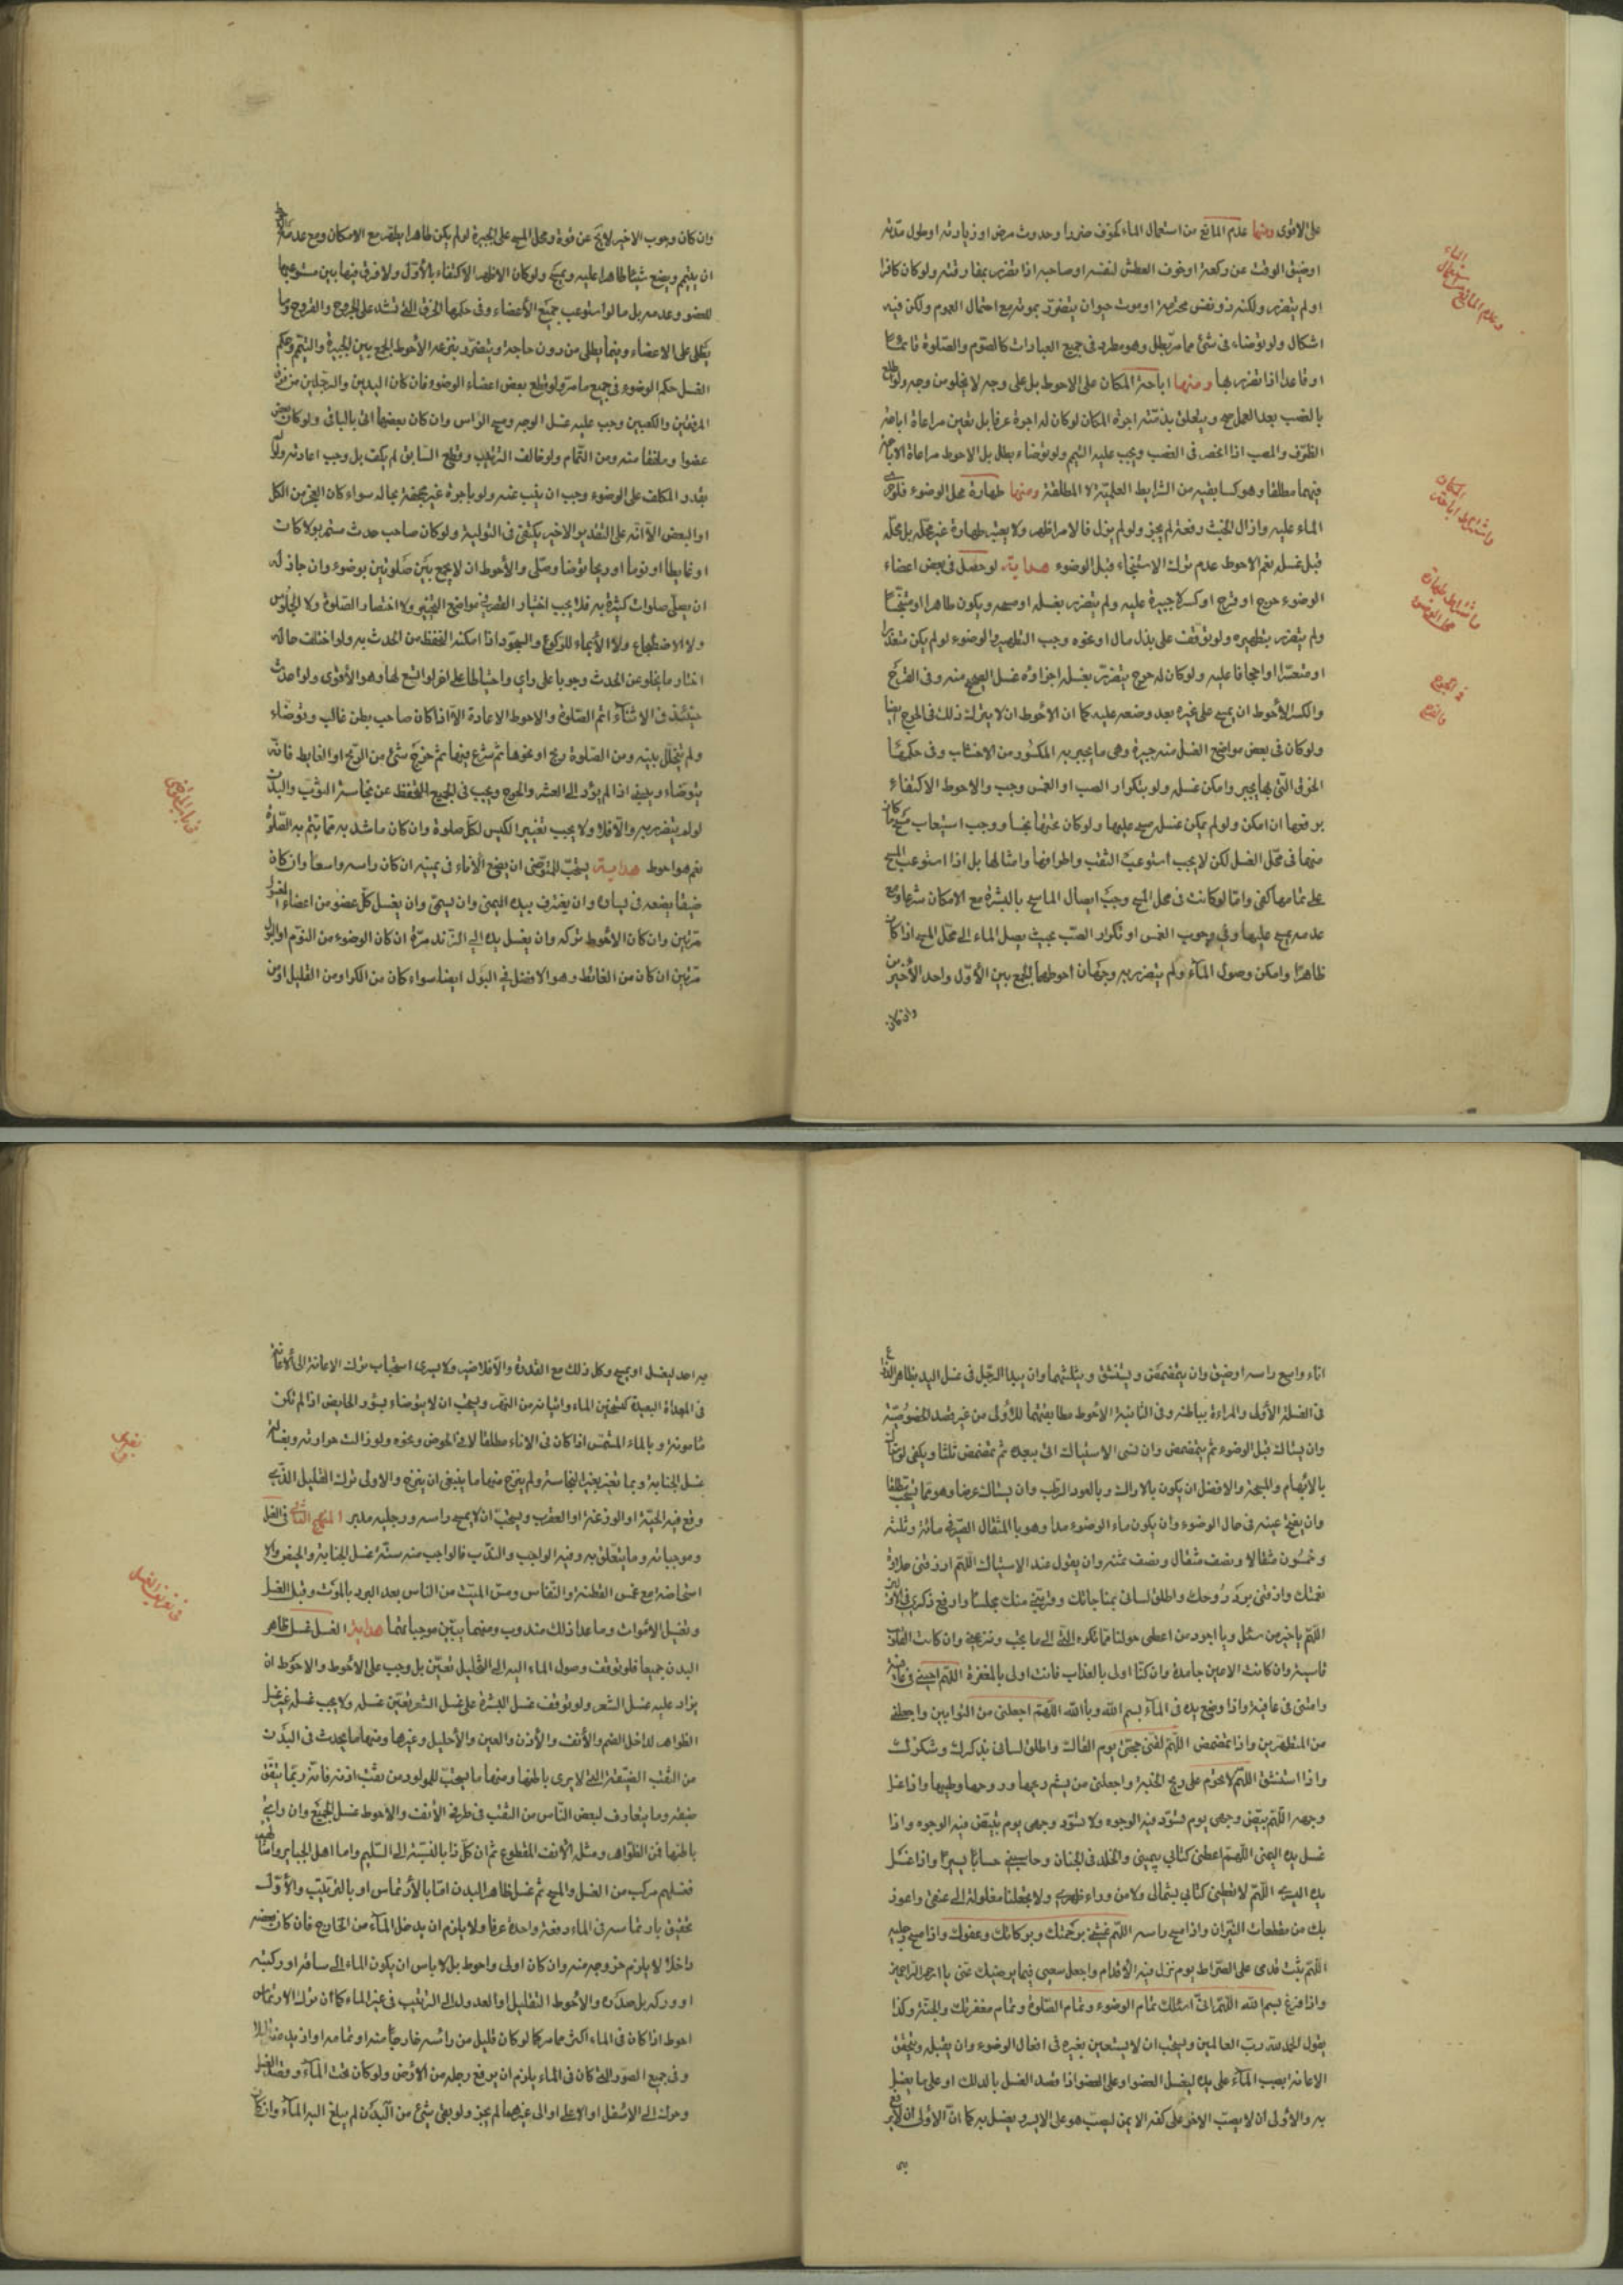 على الاقوى ومنها عدم المانع من استعمال الماء كخوف ضرر او حدوث مرض او زيادته او طول مدّته
او ضيق الوقت عن ركعة او خوف العطش لنفسه او صاحبه اذا تضرر بمفارقته ولو كان كافرا
او لم يتضرر ولكنه ذو نفس محترمة او موت حيوان يتضرر بموته مع احتمال العموم ولكن فيه
اشكال ولو توضاء فى شئ مما مرّ بطل وهو مطرد فى جميع العبادات كالصّوم والصّلوة قائمًا
او قاعدا اذا تضرر بها ومنها اباحة المكان على الاحوط بل على وجه لا يخلو من وجه ولو
بالغصب بعد العمل صح ويتعلق بذمّته اجرة المكان لو كان له اجرة عرفا بل تعين مراعاة اباحة
الظرف والمصب اذا انحصر فى الغصب ويجب عليه التيمم ولو توضاء بطل بل الاحوط مراعاة الاباحة
فيهما مطلقا وهو كسابقيه من الشرايط العلميّة لا المطلقة ومنها طهارة محل الوضوء فلو
الماء عليه وازال الخبث رفعة لم يجز ولو لم يزل فالامر اظهر ولا يعتبر طهارة غير محلّه بل محلّه
قبل غسله نعم الاحوط عدم ترك الاستنجاء قبل الوضوء هداية لو حصل فى بعض اعضاء
الوضوء جرح او قرح او كسر لا جبيرة عليه ولم يتضرر بغسله او مسحه ويكون طاهرا او متنجّسًا
ولم يتضرر بتطهيره ولو توقف على بذل مال او نحوه وجب التطهير والوضوء لو لم يكن متعذرا
او متعسّرا او اجحافا عليه ولو كان له جرح يتضرّر بغسله اجزاه غسل الصحيح منه وفى القرح
والكسر الأحوط ان يمسح على غيره بعد وضعه عليه كما ان الأحوط ان لا يترك ذلك فى الجرح ايضا
ولو كان فى بعض مواضع الغسل منه جبيرة وهى ما يجبر به المكسور من الاخشاب وفى حكمها
الخرق التّى بها يجبر وامكن غسله ولو بتكرار الصب او الغمس وجب والاحوط الاكتفاء
برفعها ان امكن ولو لم يمكن غسله مسح عليها ولو كان تحتها نجسا ووجب استيعاب مسح ما كان
منها فى محّل الغسل لكن لا يجب استوعب الثقب واطرافها وامثالها بل اذا استوعب المسح
على تمامها كفى وامّا لو كانت فى محل المسح وجب ايصال الماسح بالبشرة مع الامكان شرعا ومع
عدمه يمسح عليها وفى وجوب الغمس او تكرار الصّب بحيث يصل الماء الى محّل المسح اذا كان
طاهرًا وامكن وصول المآء ولم يتضرر به وجهان احوطهما الجمع بين الأوّل واحد الأخيرين
وان كان
وعدم المانع من استعمال الماء
واشتراط اباحة المكان
واشتراط طهارة محل الوضوء
فى الجرح والقرح
وان كان وجوب الاخير لا يخ عن قوة ومحل المسح على الجبيرة لو لم يكن طاهرا يطهر مع الامكان ومع عدمه
ان يتيمم ويضع شيئا طاهرا عليه ويمسح ولو كان الاظهر الاكتفاء بالأوّل ولا فرق فيها بين مستوعبها
للعضو وعدمه بل ما لو استوعب جميع الأعضاء وفى حكمها الخرق التى تشد على الجروح والقروح وما
يطلى على الاعضاء وفيما يطلى من دون حاجة ويتضرر بنزعه الأحوط الجمع بين الجبيرة والتيمم وحكم
الغسل حكم الوضوء فى جميع ما مرّ ولو قطع بعض اعضاء الوضوء فان كان اليدين والرجلين من
المرفقين والكعبين وجب عليه غسل الوجه ومسح الرّاس وان كان بعضها اتى بالباقى ولو كان بعض
عضوا وملفقا منه ومن التّمام ولو خالف الترتيب وقطع السابق لم يكف بل وجب اعادته ولو لم
يقدر المكلف على الوضوء وجب ان ينيب عنه ولو باجرة غير مجحفة بحاله سواء كان العجز من الكل
او البعض الاّ انّه على التقدير الاخير يكتفى فى التولية ولو كان صاحب حدث مستمر بولا كان
او غايطا او نوما او ريحا توضا وصّلى والأحوط ان لا يجمع بين صلوتين بوضوء وان جاز له
ان يصلّى صلوات كثيرة به فلا يجب اختيار القصر فى مواضع التخيير ولا اختصار الصّلوة ولا الجلوس
ولا الاضطجاع ولا الأيماء للركوع والسجود اذا امكنه التحفظ من الحدث به ولو اختلف حاله
اختار ما يخلو عن الحدث وجوبا على راى واحتياطا على اخر لو اتسع لها وهو الأقوى ولو احدث
حينئذ فى الاثنآء اتم الصّلوة والاحوط الاعادة الاّ اذا كان صاحب بطن غالب وتوضّاء
ولم يتخلّل بينه ومن الصّلوة ريح او نحوها ثم شرع فيها ثم خرج شئ من الرّيح او الغايط فانّه
يتوضاء ويبنى اذا لم يؤد الى العسر والحرج ويجب فى الجميع التحفظ عن نجاسة الثوب والبدن
لو لم يتضرر به والاّ فلا ولا يجب تغيير الكيس لكّل صلوة وان كان ما شد به ممّا يتم به الصّلوة
نعم هو احوط هداية يستحّب للمتوضى ان يضع الأناء فى يمينه ان كان راسه واسعا وان كان
ضيقا يضعه فى يساره وان يغترف بيده اليمنى وان يسمّى وان يغسل كلّ عضو من اعضاء الغسل
مرّتين وان كان الأحوط تركه وان يغسل يديه الى الزّند مرّة ان كان الوضوء من النّوم او البول
مرّتين ان كان من الغائط وهو الافضل فى البول ايضا سواء كان من الكر او من القليل او من
اناء واسع راسه او ضيق وان يتمضمض ويستنشق ويثلّثهما وان يبدا الرّجل فى غسل اليد بظاهر الذراع
فى الغسلة الأولى والمراءة بباطنه وفى الثانية الأحوط مطابقتهما للأولى من غير قصد الخصوصيّة
وان يستاك قبل الوضوء ثم يتمضمض وان نسى الاستياك اتى ببعده ثم تمضمض ثلثا ويكفى لو
بالأبهام والمسبحة والافضل ان يكون بالاراك وبالعود الرّطب وان يستاك عرضا وهو مما يستحب مطلقا
وان يفتح عينه فى حال الوضوء وان يكون ماء الوضوء مدا وهو بالمثقال الصّيرفى مائة وثلثة
وخمسون مثقالا ونصف مثقال ونصف ثمنه وان يقول عند الاستياك اللّهم ارزقنى حلاوة
نعمتك واذقنى برد روحك واطلق لسانى بمناجاتك وقربنى منك مجلسًا وارفع ذكرى فى الأولين
اللّهم يا خير من سئل ويا اجود من اعطى حولنا مما تكره الى ما تحب وترضى وان كانت القلوب
قاسية وان كانت الاعين جامدة وان كنّا اولى بالعذاب فانت اولى بالمغفرة اللّهم احينى فى عافية
وامتنى فى عافية واذا وضع يده فى المآء بسم الله وبالله اللّهم اجعلنى من التوابين واجعلنى
من المتطهّرين واذا تمضمض اللّهم لقنى حجتى يوم القاك واطلق لسانى بذكرك وشكرك
واذا استنشق اللّهم لا تحرّم على ريح الجنة واجعلنى من يشم ريحها وروحها وطيبها واذا غسل
وجهه اللّهم بيّض وجهى يوم تسّود فيه الوجوه ولا تسّود وجهى يوم تبيّض فيه الوجوه واذا
غسل يده اليمنى اللّهم اعطنى كتابى بيمينى والخلد فى الجنان وحاسبنى حسابًا يسيرًا واذا غسل
يده اليسرى اللّهم لا تعطنى كتابى بشمالى ولا من وراء ظهرى ولا تجعلها مغلولة الى عنقى واعوذ
بك من مقطعات النيران واذا مسح راسه اللّهم غشنى برحمتك وبركاتك وعفوك واذا مسح رجليه
اللّهم ثبّت قدمى على الصّراط يوم تزل فيه الأقدام واجعل سعيى فيما يرضيك عنى يا ارحم الراحمين
واذا فرغ بسم الله اللّهم انّى اسئلك تمام الوضوء وتمام الصّلوة وتمام مغفرتك والجنّة وكذا
يقول الحمد لله ربّ العالمين ويستحب ان لا يستعين بغيره فى افعال الوضوء وان يقبله ويتحقق
الاعانة بصب المآء على يده ليغسل العضو او على العضو اذا قصد الغسل بالدلك او على ما يغسل
به والأولى ان لا يصبّ الاخر على كفه الايمن ليصب هو على الايسر ويغسل به كما انّ الأولى ان لا يرفع
به احد ليغسل او يمسح وكل ذلك مع القدرة والاّ فلا ضير ولا يسرى استحباب ترك الاعانة الى الاعانة
فى المقدمات البعيدة كتسخين الماء واتيانه من النهر ويستحب ان لا يتوضاء بسؤر الحايض اذا لم تكن
مامونة وبالماء المشمّس اذا كان فى الاناء مطلقا لا فى الحوض ونحوه ولو زالت حرارته وبغسالة
غسل الجنابة وبما تغير بغير النجاسة ولم ينزح منها ما ينبغى ان ينزح والاولى ترك القليل الذى
وقع فيه الحيّة او الوزغة او العقرب ويستحبّ ان لا يمسح راسه ورجليه مدبر المنهج الثانى فى الغسل
وموجباته وما يتعلّق به وفيه الواجب والنّدب فالواجب منه ستّة غسل الجنابة والحيض والا
استحاضة مع غمس القطنة والنّفاس ومسّ الميّت من الناس بعد البرد بالموت وقبل الغسل
وتغسيل الأموات وما عدا ذلك مندوب ومنهما يبيّن موجباتهما هداية الغسل غسل ظاهر
البدن جميعا فلو توقف وصول الماء اليه الى التخليل تعيّن بل وجب على الأحوط والاحوط ان
يزاد عليه غسل الشعر ولو توقف غسل البشرة على غسل الشعر تعيّن غسله ولا يجب غسل غير
الظواهر كداخل الفم والأنف والأذن والعين والأحليل وغيرها ومنها ما يحدث فى البدن
من الثقب الضيّقة التى لا يرى باطنها ومنها ما يستحب للمولود من ثقب اذنه فانّه ربّما يبقى
ضيقه وما يتعارف لبعض النّاس من الثقب فى طرف الأنف والاحوط غسل الجميع وان راى
باطنها فمن الظواهر ومثله الأنف المقطوع ثم ان كلّ ذا بالنسبة الى السّليم واما اهل الجبايز
فغسلهم مركب من الغسل والمسح ثم غسل ظاهر البدن امّا بالأرتماس او بالترتيب والأوّل
تحقيق بارتماسه فى الماء دفعة واحدة عرفا ولا يلزم ان يدخل المآء من الخارج فان كان بعضه
داخلا لا يلزم خروجه منه وان كان اولى واحوط بل لا باس ان يكون الماء الى ساقه او ركبته
او وركه بل صدره والأحوط التقليل او العدول الى الترتيب فى غير الماء كما ان ترك الارتماس
احوط اذا كان فى الماء اكثر مما مر كما لو كان قليل من رائسه خارجًا منه او تمامه او ازيد منه
وفى جميع الصّور التى كان فى الماء يلزم ان يرفع رجله من الأرض ولو كان تحت المآء وقصد الغسل
وحركة الى الاسفل او الاعلى او الى غيرهما لم يجز ولو بقى شئ من البدن لم يبلغ اليه المآء وان كان
فى تعريف الغسل